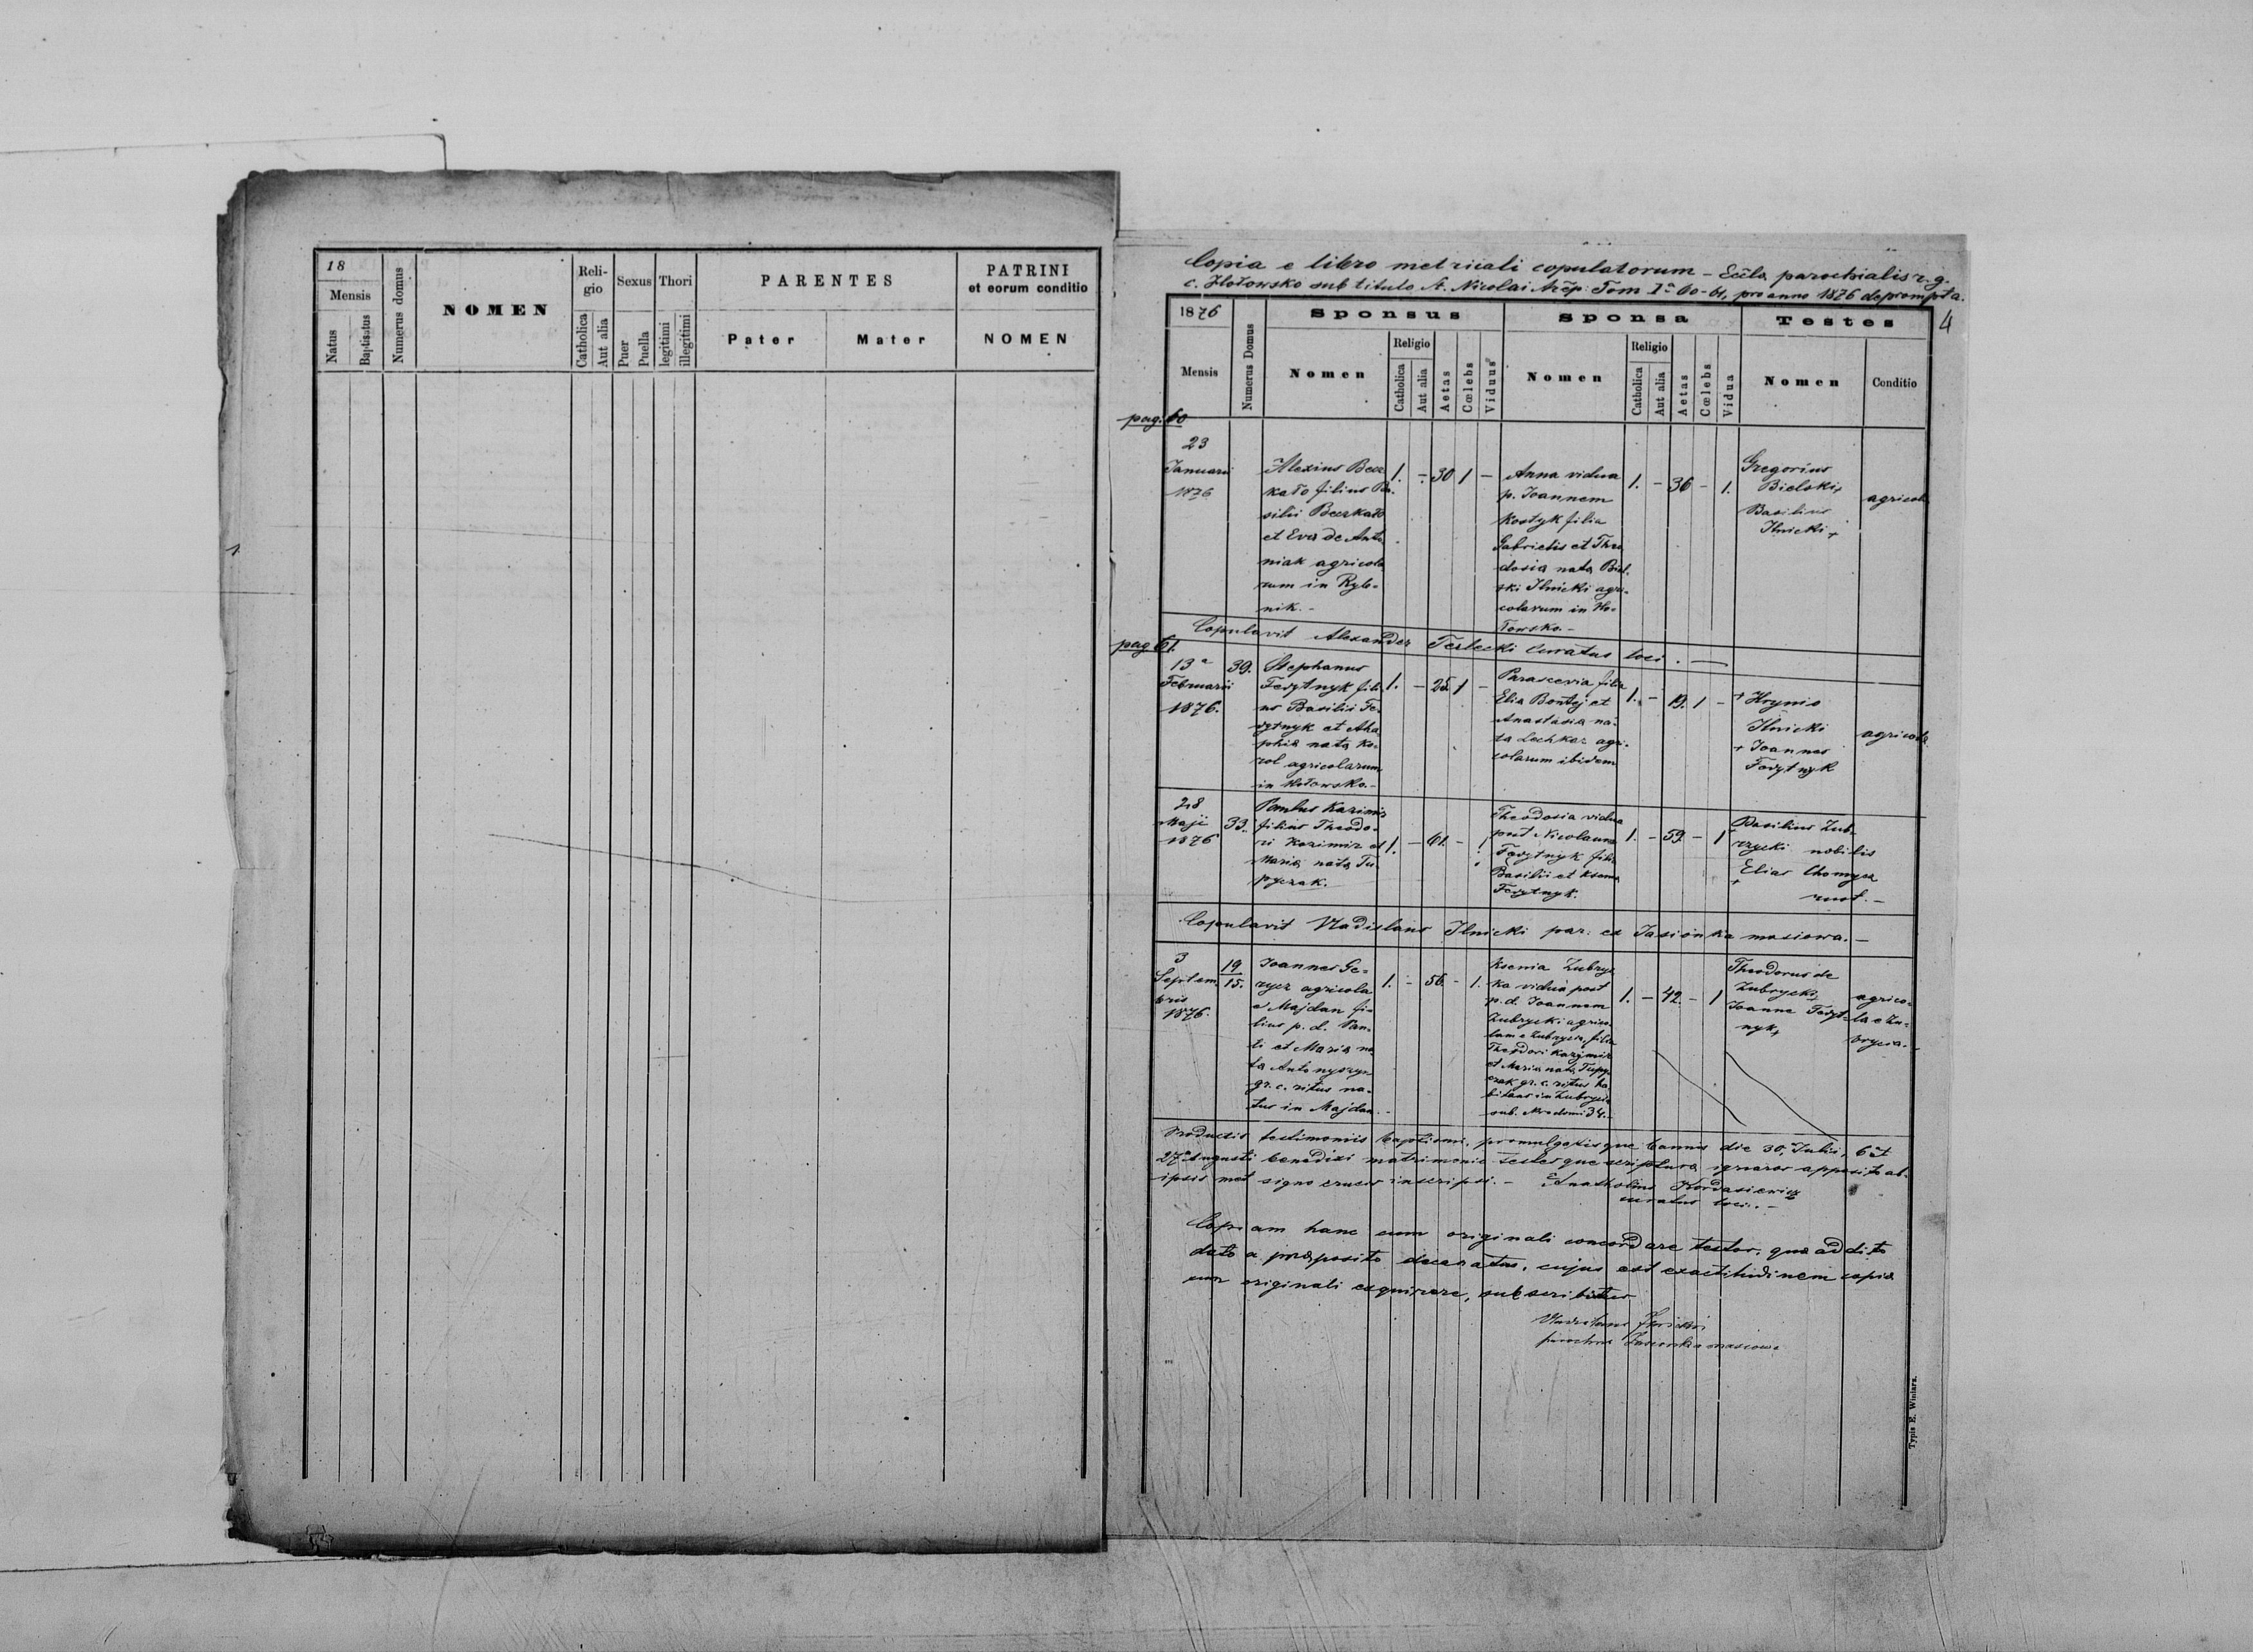 18
Mensis
Natus
Baptisatus
Numerus domus
NOMEN
Reli-
gio
Catholica
Aut alia
Sexus
Puer
Puella
Thori
legitimi
illegitimi
PARENTES
Pater
Mater
PATRINI
et eorum conditio
NOMEN
Copia e libro metricali copulatorum – Eccla parochialis r. g.
c. Hołowsko sub titulo S. Nicolai Arep. Tom I 60-61, pro anno 1876 deprompta.
4
1876
Mensis
Numerus Domus
Sponsus
Nomen
Religio
Catholica
Aut alia
Aetas
Cœlebs
Viduus
Sponsa
Nomen
Religio
Catholica
Aut alia
Aetas
Cœlebs
Vidua
Testes
Nomen
Conditio
pag. 60
23
Januarii
1876
Alexius Becz
kało filius Ba
silii Beczkało
et Eva de Anto
niak agricola
rum in Rybe-
nik. –
1. – 30 1 –
Anna vidua
p. Joannem
Kostyk filia
Gabrielis et Theo
dosia nata Biel-
ski Ilnicki agri-
colarum in Ho-
łowsko. –
1. – 36 – 1.
Gregorius
Bielski +
Basilius
Ilnicki +
agricola
Copulavit Alexander Terlecki Curatus loci. –
pag. 61.
13
Februarii
1876.
39.
Stephanus
Fedytnyk fili
us Basilii Fe-
dytnyk et Aha
phia nata Ko-
rol agricolarum
in Hołowsko. –
1. – 25. 1 –
Parascevia filia
Elia Bontej et
Anastasia na-
ta Lechkar agri-
colarum ibidem
1. – 19. 1 –
+ Hrynio
Ilnicki
+ Joannes
Fedytnyk
agricola
28
Maji
1876
33.
Paulus Kazimir
filius Theodo-
ri Kazimir et
Maria nata Tu
pyczak.
1. – 61. – 1
Theodosia vidua
post Nicolaum
Fedytnyk filia
Basilii et Ksenia
Fedytnyk.
1. – 59. – 1
Basilius Zub-
rzycki nobilis
+ Elias Chomycz
rust. –
Copulavit Vladislaus Ilnicki par: ex Jasionka masiowa. –
3
Septem
bris
1876.
19
15.
Joannes Ge-
rycz agricola
e Majdan fi-
lius p. d. Pau-
li et Maria na
ta Antonyszyn
gr. c. ritus na-
tus in Majdan. –
1. – 56. – 1.
Ksenia Zubryc
ka vidua post
p. d. Joannem
Zubrycki agrico-
lam e Zubrycia filia
Theodori Kazymir
et Maria nata Tupy-
czak gr. c. ritus ha
bitans in Zubrycia
sub. Nro domi 34. –
1. – 42. – 1
Theodorus de
Zubrycki +
Joannes Fedyt-
nyk +
agrico-
la e Zu-
brycia. –
Productis testimoniis baptismi, promulgatisque bannis die 30. Julii, 6 et
27 Augusti benedixi matrimonio testesque scriptura ignaros apposito ab
ipsis met signo crucis inscripsi. – Anatholius Kordasiewicz
curatus loci. –
Copiam hanc cum originali concordare testor, qua addito
dato a praeposito decanatus, cujus est exactitudinem copia
cum originali exquirere, subscribitur
Vladislaus Ilnicki
parochus Jasionka masiowa
Typis E. Winiarz.